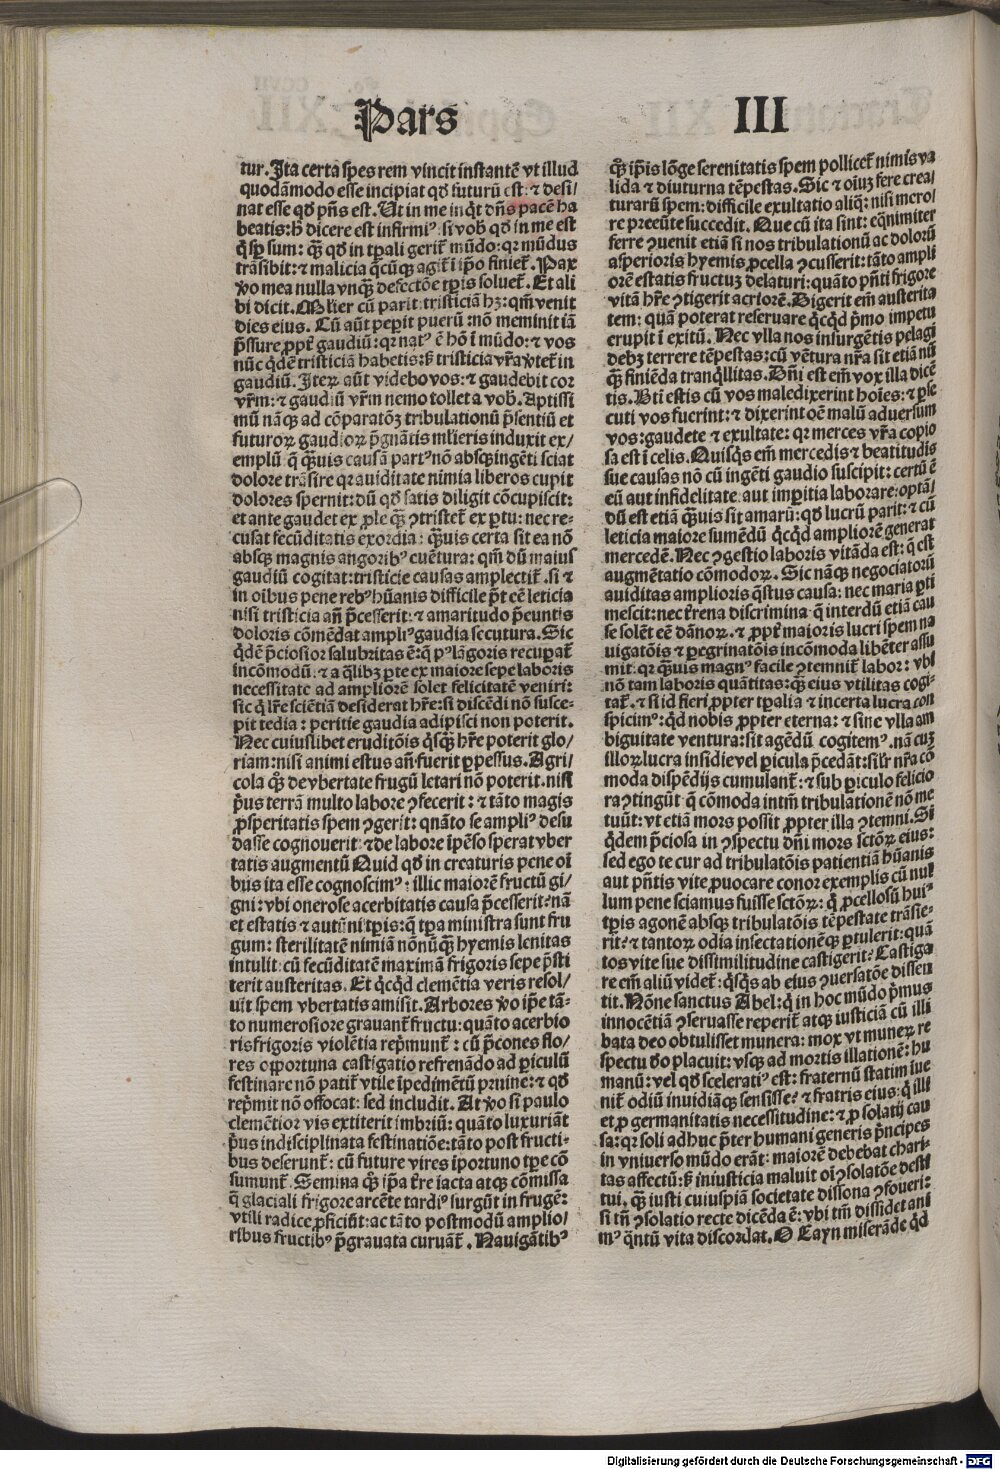 Pars III
tur. Ita certa spes rem vincit instantē vt illud
quodāmodo esse incipiat qd̄ futurū est: ⁊ desi/
nat esse qd̄ pn̄s est. Ut in me inq̇t dn̄s pacē ha
beatis: h̄ dicere est infirmiꝰ. si vob̄ qd̄ in me est
trāsibit: ⁊ malicia
mea nulla vnq̄ꝫ defectōe tꝑis soluet᷑. Et ali
bi dicit. Mlier cū parit: tristiciā hꝫ: qm̄ venit
dies eius. Cū aūt peꝑit puerū: nō meminit iā
p̄ssure ꝓpt᷑ gaudiū: qꝛ natꝰ ē hō ī mūdo: ⁊ vos
nūc q̇dē tristiciā habetis: sꝫ tristicia vr̄a
gaudiū. Iteꝝ aūt videbo vos: ⁊ gaudebit cor
vr̄m: ⁊ gaudiū vr̄m nemo tollet a vob̄. Aptissi
mū nāqꝫ ad cōparatōꝫ tribulationū p̄sentiū et
futuroꝝ gaudioꝝ p̄gnātis mlieris induxit ex/
emplū q̄ q̄ꝫuis causā partꝰ nō absqꝫ ingēti sciat
dolore trāsire qꝛ auiditate nimia liberos cupit
dolores spernit: dū qd̄ satis diligit cōcupiscit:
et ante gaudet ex ꝓle q̄ꝫ ꝯtristet᷑ ex ꝑtu: nec re-
cusat fecūditatis exordia: q̄ꝫuis certa sit ea nō
absqꝫ magnis angoribꝰ euētura: qm̄ dū maius
gaudiū cogitat: tristicie causas amplectit᷑. si ⁊
in oībus pene rebꝰ hūanis difficile p̄t eē leticia
nisi tristicia an̄ p̄cesserit: ⁊ amaritudo p̄euntis
doloris cōmēdat ampliꝰ gaudia secutura. Sic
q̇dē p̄ciosior salubritas ē: q̄ pꝰ lāgoris recuꝑat᷑
incōmodū: ⁊ a q̇libꝫ ꝑte ex maiore sepe laboris
necessitate ad ampliorē solet felicitatē veniri:
sic q̇ lr̄e sciētiā desiderat hr̄e: si discēdi nō susce-
pit tedia: peritie gaudia adipisci non poterit.
Nec cuiuslibet eruditōis q̇sqꝫ hr̄e poterit glo/
riam: nisi animi estus an̄ fuerit ꝑpessus. Agri/
cola q̊ꝫ de vbertate frugū letari nō poterit. nisi
p̄us terrā multo labore ꝯfecerit: ⁊ tāto magis
ꝓsperitatis spem ꝯgerit: quāto se ampliꝰ desu
dasse cognouerit: ⁊ de labore īpēso sperat vber
tatis augmentū Quid qd̄ in creaturis pene oī
bus ita esse cognoscimꝰ: illic maiorē fructū gi/
gni: vbi onerose acerbitatis causa p̄cesserit: nā
et estatis ⁊ autūni tꝑis: q̄ tꝑa ministra sunt fru
gum: sterilitatē nimiā nōnūq̄ꝫ hyemis lenitas
intulit: cū fecūditatē maximā frigoris sepe p̄sti
terit austeritas. Et q̇cq̇d clemētia veris resol/
uit spem vbertatis amisit. Arbores
to numerosiore grauant᷑ fructu: quāto acerbio
ris frigoris violētia rep̄munt᷑: cū p̄cones flo/
res oportuna castigatio refrenādo ad ꝑiculū
festinare nō patit᷑ vtile īpedimētū
rep̄mit nō offocat: sed includit. si paulo
clemētior vis extiterit imbriū: quāto luxuriāt
p̄us indisciplinata festinatiōe: tāto post fructi-
bus deserunt᷑: cū future vires īportuno tꝑe cō
sumunt᷑. Semina q̊ꝫ ip̄a t᷑re iacta atqꝫ cōmissa
q̄ glaciali frigore arcēte tardiꝰ surgūt in frugē:
vtili radice ꝓficiūt: ac tāto postmodū amplio/
ribus fructibꝰ p̄grauata curuāt᷑. Nauigātibꝰ
q̊ꝫ ip̄is lōge serenitatis spem pollicet᷑ nimis va
lida ⁊ diuturna tēpestas. Sic ⁊ oīuꝫ fere crea/
turarū spem: difficile exultatio aliq̄: nisi mero/
re preeūte succedit. Que cū ita sint: eq̄nimiter
ferre ꝯuenit etiā si nos tribulationū ac dolorū
asperioris hyemis ꝓcella ꝯcusserit: tāto ampli
orē estatis fructuꝫ delaturi: quāto pn̄ti frigore
vitā hr̄e ꝯtigerit acriorē. Digerit em̄ austerita
tem: quā poterat reseruare q̇cq̇d p̄mo impetu
erupit ī exitū. Nec vlla nos insurgētis pelagi
debꝫ terrere tēpestas: cū vētura nr̄a sit etiā nū
q̄ꝫ finiēda tranq̇llitas. Dn̄i est em̄ vox illa dicē
tis. Bt̄i estis cū vos maledixerint hoīes: ⁊ ꝑse
cuti vos fuerint: ⁊ dixerint oē malū aduersum
vos: gaudete ⁊ exultate: qꝛ merces vr̄a copio
sa est ī celis. Quisq̇s em̄ mercedis ⁊ beatitudis
sue causas nō cū ingēti gaudio suscipit: certū ē
eū aut infidelitate aut imꝑitia laborare: optā/
dū est etiā q̄ꝫuis sit amarū: qd̄ lucrū parit: ⁊ cū
leticia maiore sumēdū q̇cq̇d ampliorē generat
mercedē. Nec ꝯgestio laboris vitāda est: q̄ est
augmētatio cōmodoꝝ. Sic nāqꝫ negociatorū
auiditas amplioris q̄stus causa: nec maria ꝑti
mescit: nec t᷑rena discrimina: q̄ interdū etiā cau
se solēt eē dānoꝝ. ⁊ ꝓpt᷑ maioris lucri spem na
uigatōis ⁊ ꝑegrinatōis incōmoda libēter assu
mit: qꝛ q̄ꝫuis magnꝰ facile ꝯtemnit᷑ labor: vbi
nō tam laboris quātitas: q̄ꝫ eius vtilitas cogi-
tat᷑. ⁊ si id fieri ꝓpter tꝑalia ⁊ incerta lucra con
spicimꝰ: q̇d nobis ꝓpter eterna: ⁊ sine vlla am
biguitate ventura: sit agēdū cogitemꝰ. nā cuꝫ
illoꝝ lucra insidie vel ꝑicula p̄cedāt: silr̄ nr̄a cō
moda dispēdijs cumulant᷑: ⁊ sub ꝑiculo felicio
ra ꝯtingūt q̄ cōmoda intm̄ tribulationē nō me
tuūt: vt etiā mors possit ꝓpter illa ꝯtemni. Si
q̇dem p̄ciosa in ꝯspectu dn̄i mors sctōꝝ eius:
sed ego te cur ad tribulatōis patientiā hūanis
aut pn̄tis vite ꝓuocare conor exemplis cū nul
lum pene sciamus fuisse sctōꝝ: q̇ ꝓcellosū huiꝰ
tꝑis agonē absqꝫ tribulatōis tēpestate trāsie-
rit: ⁊ tantoꝝ odia insectationēqꝫ ꝑtulerit: quā
tos vite sue dissimilitudine castigerit: Castiga
re em̄ aliū videt᷑: q̇sq̇s ab eius ꝯuersatōe dissen
tit. Nōne sanctus Abel: q̇ in hoc mūdo p̄mus
innocētiā ꝯseruasse reperit᷑ atqꝫ iusticiā cū illi
bata deo obtulisset munera: mox vt muneꝝ re
spectu deo placuit: vsqꝫ ad mortis illationē: hu
manū: vel qd̄ sceleratiꝰ est: fraternū statim iue
nit᷑ odiū inuidiāqꝫ sensisse: ⁊ fratris eius: q̇ illi
et ꝓ germanitatis necessitudine: ⁊ ꝓ solatij cau
sa: qꝛ soli adhuc p̄ter humani generis p̄ncipes
in vniuerso mūdo erāt: maiorē debebat chari-
tas affectū: sꝫ iniusticia maluit oī ꝯsolatōe desti
tui. q̄ꝫ iusti cuiuspiā societate dissona ꝯfoueri:
si tn̄ ꝯsolatio recte dicēda ē: vbi tm̄ dissidet ani
mꝰ q̄ntū vita discordat. O Cayn miserāde q̇d
Digitalisierung gefördert durch die Deutsche Forschungsgemeinschaft - DFG